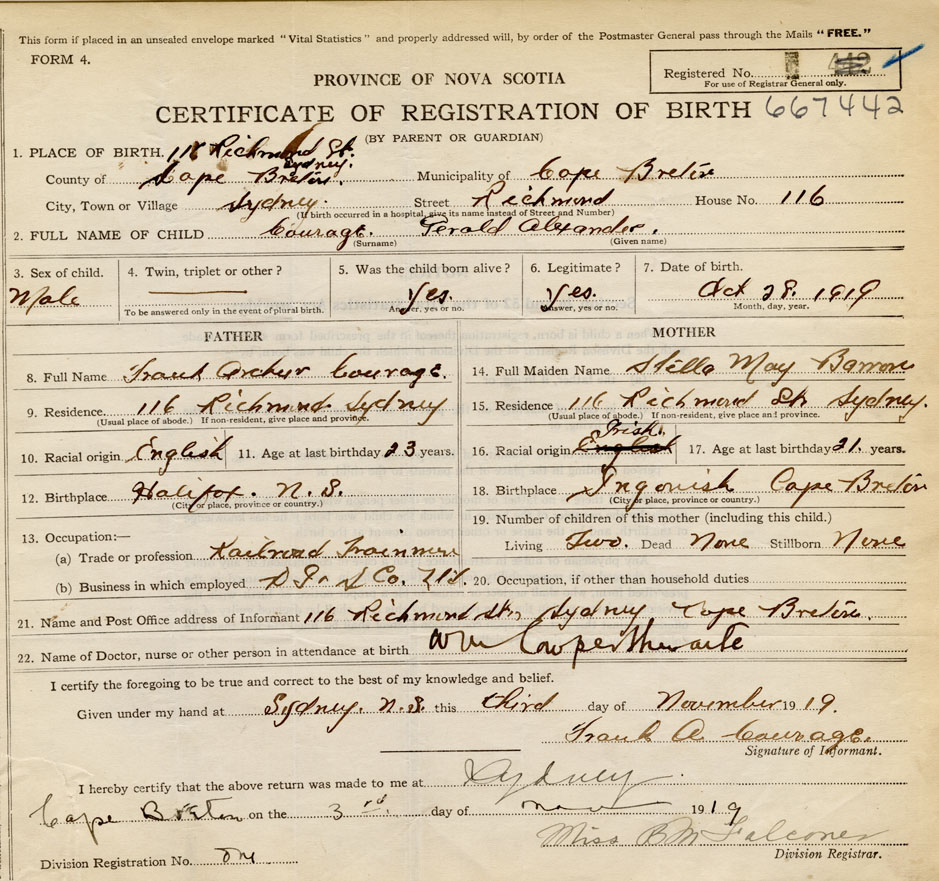 This form if placed in an unsealed envelope marked "Vital Statistics" and properly addressed will, by order of the Postmaster General pass through the Mails "FREE."
FORM 4.
Registered No. 442
For use of Registrar General only.
PROVINCE OF NOVA SCOTIA
CERTIFICATE OF REGISTRATION OF BIRTH 667442
(BY PARENT OR GUARDIAN)
1. PLACE OF BIRTH. 116 Richmond St. Sydney.
County of Cape Breton. Municipality of Cape Breton
City, Town or Village Sydney. Street Richmond House No. 116
(If birth occurred in a hospital, give its name instead of Street and Number)
2. FULL NAME OF CHILD Courage. Gerald Alexander.
(Surname) (Given name)
3. Sex of child. 4. Twin, triplet or other? 5. Was the child born alive? 6. Legitimate? 7. Date of birth.
Male Yes. Yes. Oct 28. 1919
To be answered only in the event of plural birth. Answer, yes or no. Answer, yes or no. Month, day, year.
FATHER MOTHER
8. Full Name Frank Archur Courage. 14. Full Maiden Name Stella May Barron
9. Residence. 116 Richmond Sydney 15. Residence 116 Richmond St. Sydney.
(Usual place of abode.) If non-resident, give place and province. (Usual place of abode.) If non-resident, give place and province.
10. Racial origin English 11. Age at last birthday 23 years. 16. Racial origin English Irish. 17. Age at last birthday 21. years.
12. Birthplace Halifax. N.S. 18. Birthplace Ingonish Cape Breton
(City or place, province or country.) (City or place, province or country.)
13. Occupation:— 19. Number of children of this mother (including this child.)
(a) Trade or profession Railroad Trainmen Living Two. Dead None Stillborn None
(b) Business in which employed Co. 20. Occupation, if other than household duties
21. Name and Post Office address of Informant 116 Richmond St., Sydney Cape Breton.
22. Name of Doctor, nurse or other person in attendance at birth Wm Cowperthwaite
I certify the foregoing to be true and correct to the best of my knowledge and belief.
Given under my hand at Sydney. N.S. this third day of November 1919.
Frank A. Courage.
Signature of Informant.
I hereby certify that the above return was made to me at Sydney.
Cape Breton on the 3rd day of Nov 1919
Miss B M Falconer
Division Registrar.
Division Registration No.